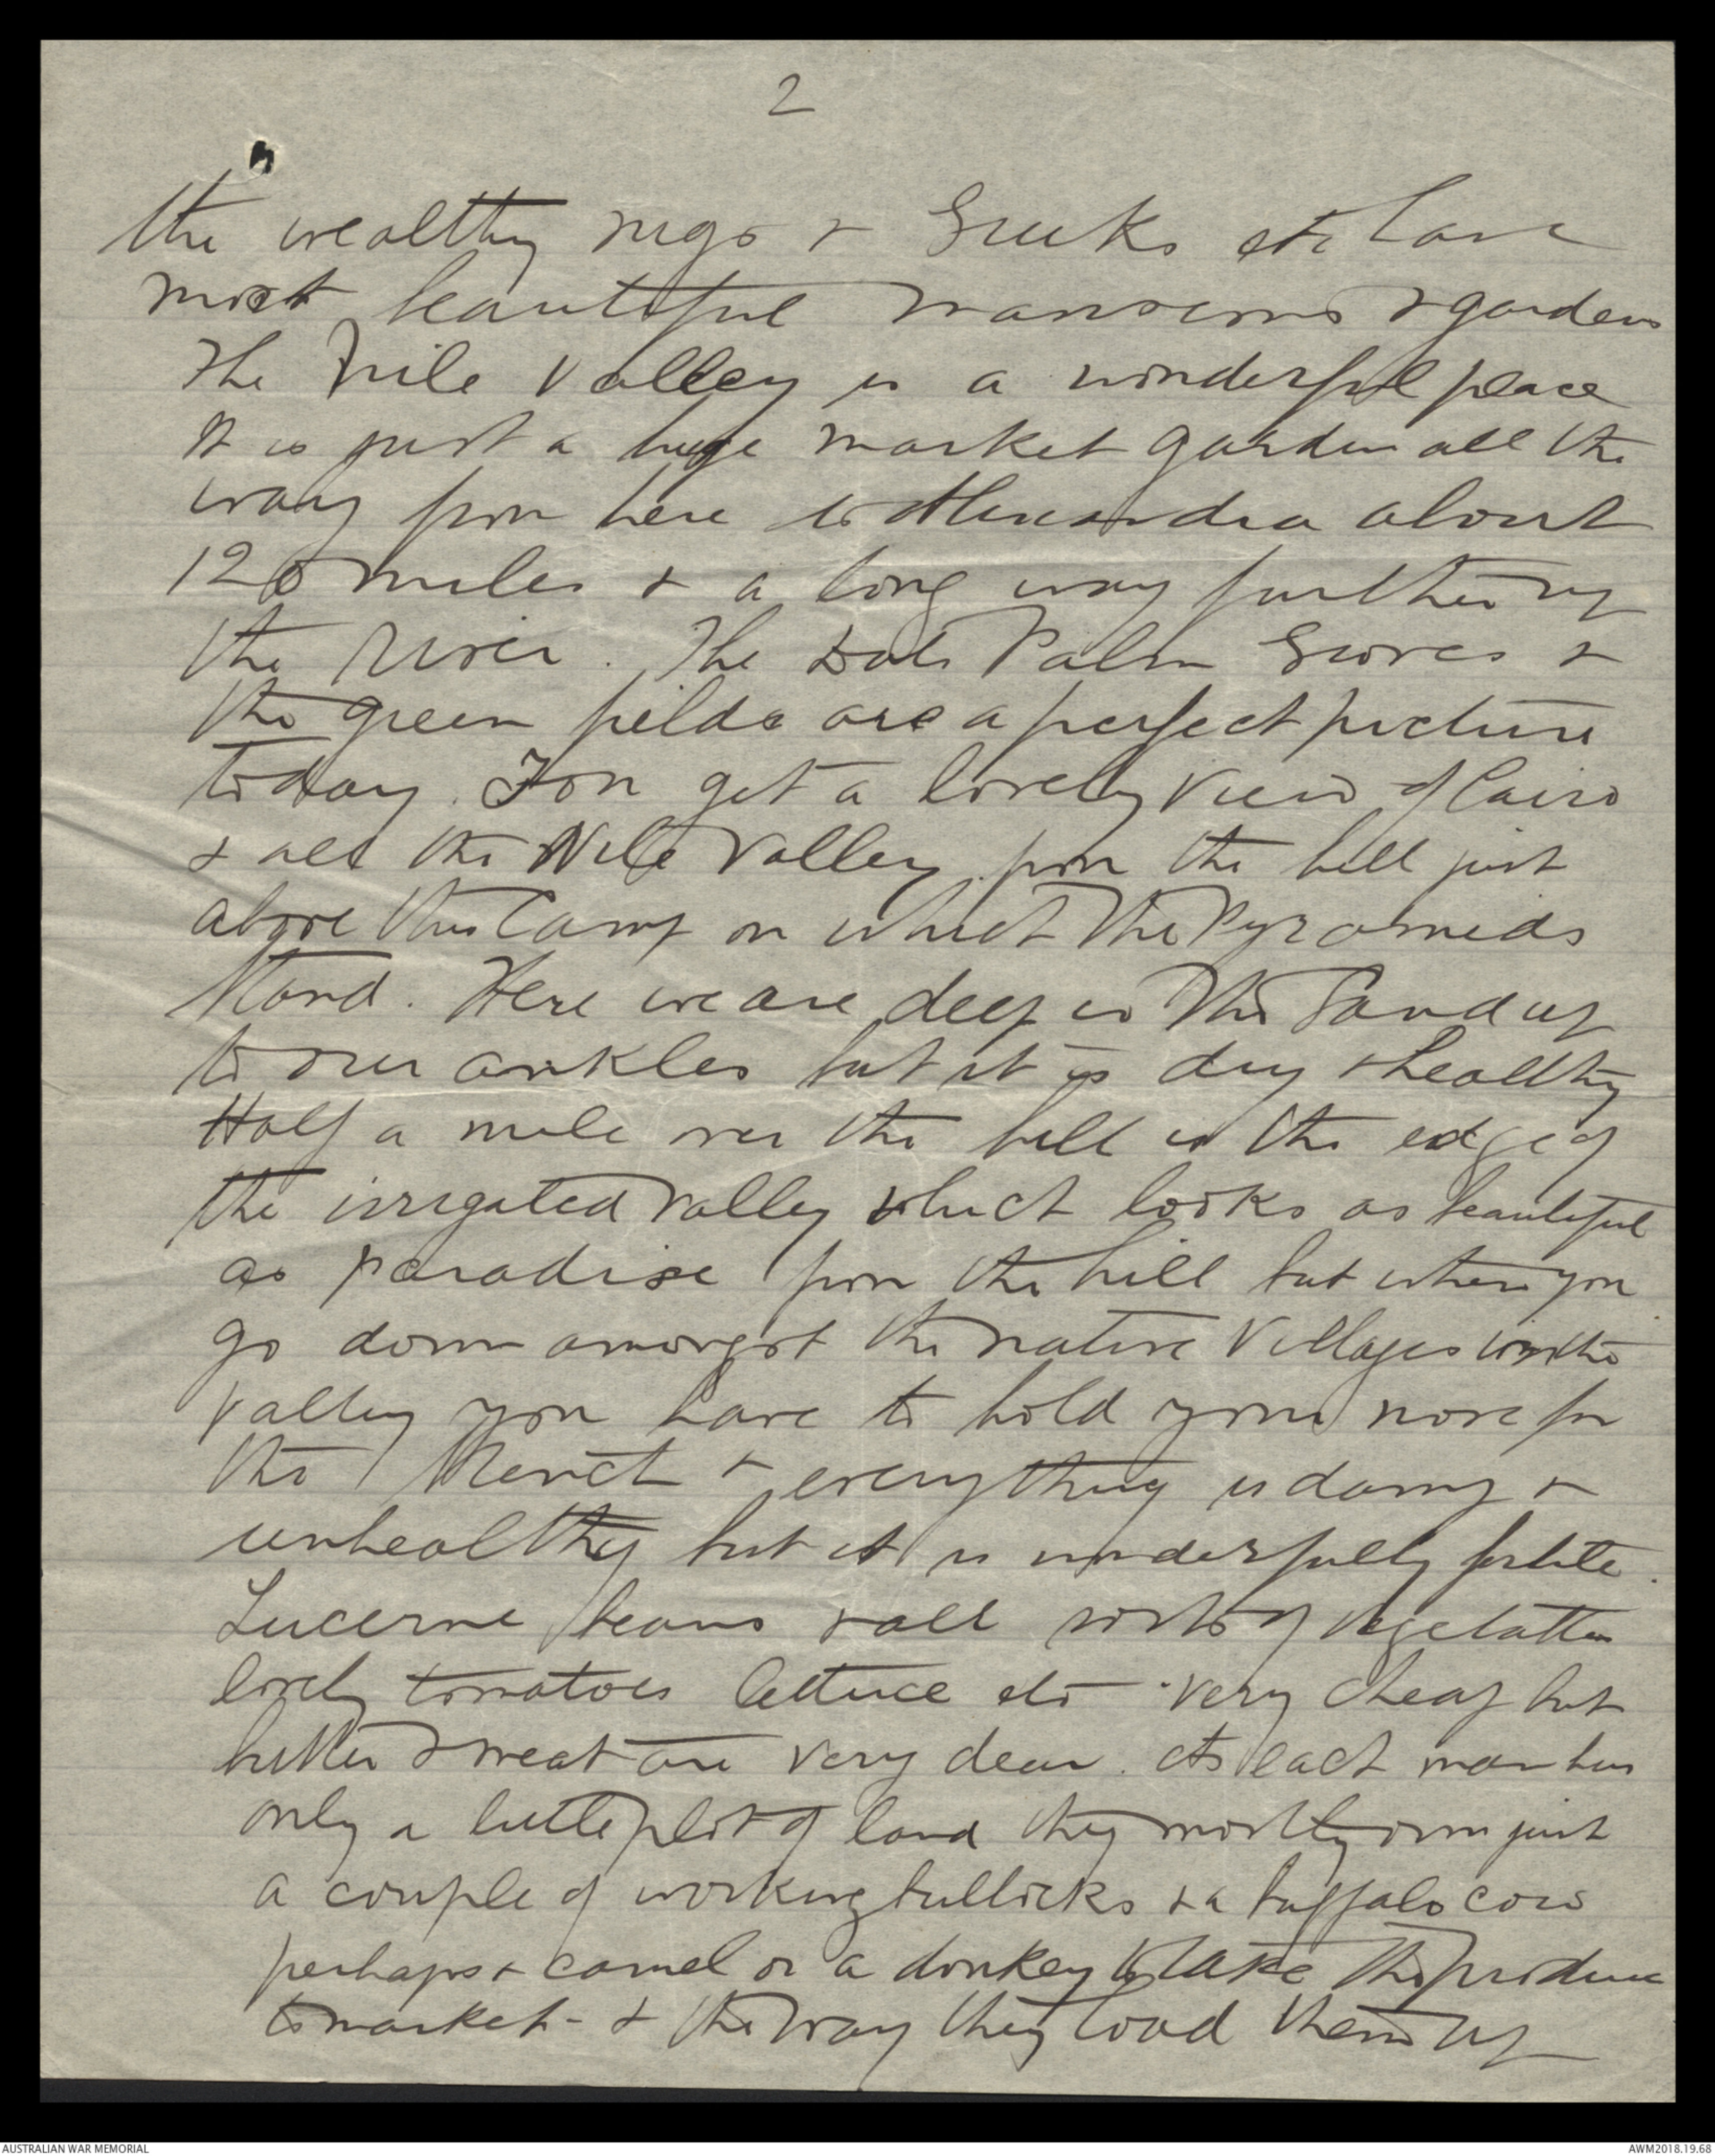 2
the wealthy nigs & Greeks etc have
most beautiful mansions & gardens
The Nile Valley is a wonderful place
It is just a huge market garden all the
way from here to Alexandra about
120 miles & a long way further up
the River. The Date Palm Groves &
the green fields are a perfect picture
today. You get a lovely view of Cairo
& all the Nile Valley from the hill just
above this Camp on which the Pyramids
stand. Here we are deep in the Sand up
to our ankles but it is dry & healthy
Half a mile over the hill is the edge of
the irrigated valley which looks as beautiful
as paradise from the hill but when you
go down amongst the native Villages in the
valley you have to hold your nose for
the stench & everything is damp &
unhealthy but it is wonderfully fertile.
Lucerne beans & all sorts of vegetation
lovely tomatoes lettuce etc very cheap but
butter & meat are very dear. As each man has
only a little plot of land they mostly own just
a couple of working bullocks & a buffalo cow
perhaps & camel or a donkey to take the produce
to market - & the way they load them up
AUSTRALIAN WAR MEMORIAL
AWM2018.19.68